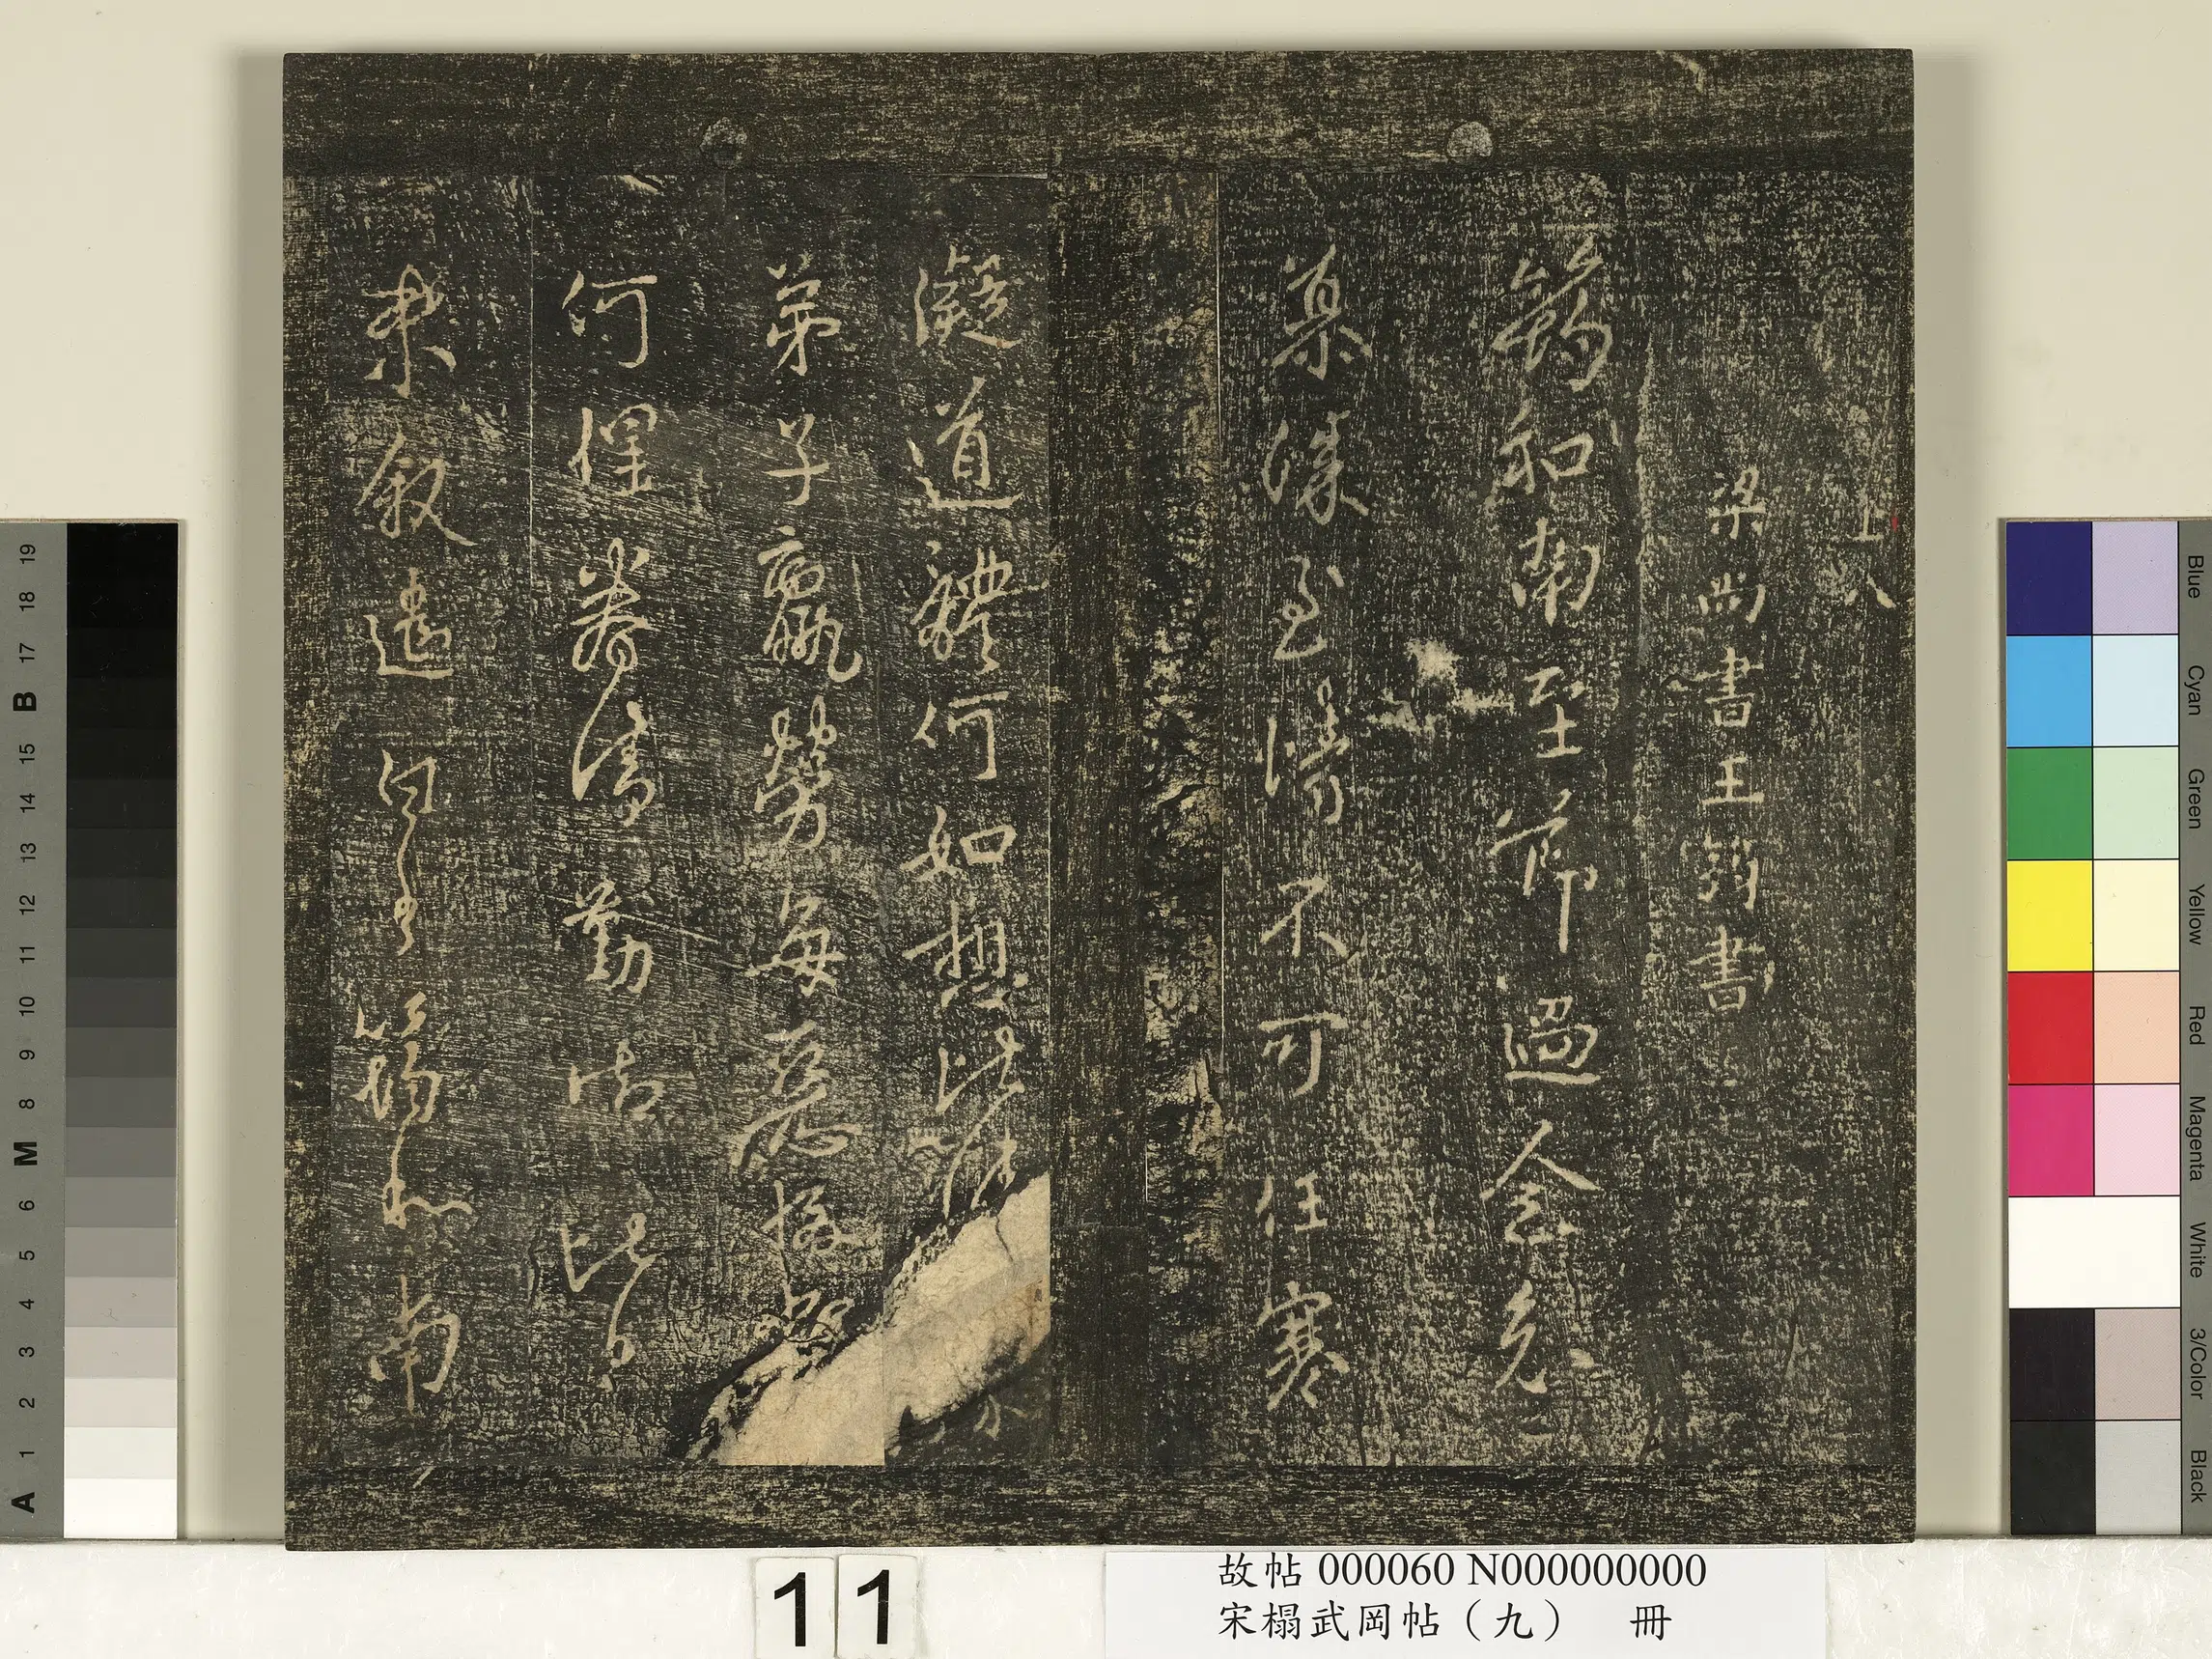 上 八
梁尚書王筠書
筠和南至節過念
慕深至情不可任寒
凝道體何如想比
弟子羸勞每惡
何眷勤
來敘遣白筠和南
11
故帖 000060 N000000000
宋榻武岡帖（九） 冊
19
18
17
B
15
14
13
12
11
10
9
8
M
6
5
4
3
2
1
A
Blue
Cyan
Green
Yellow
Red
Magenta
White
3/Color
Black